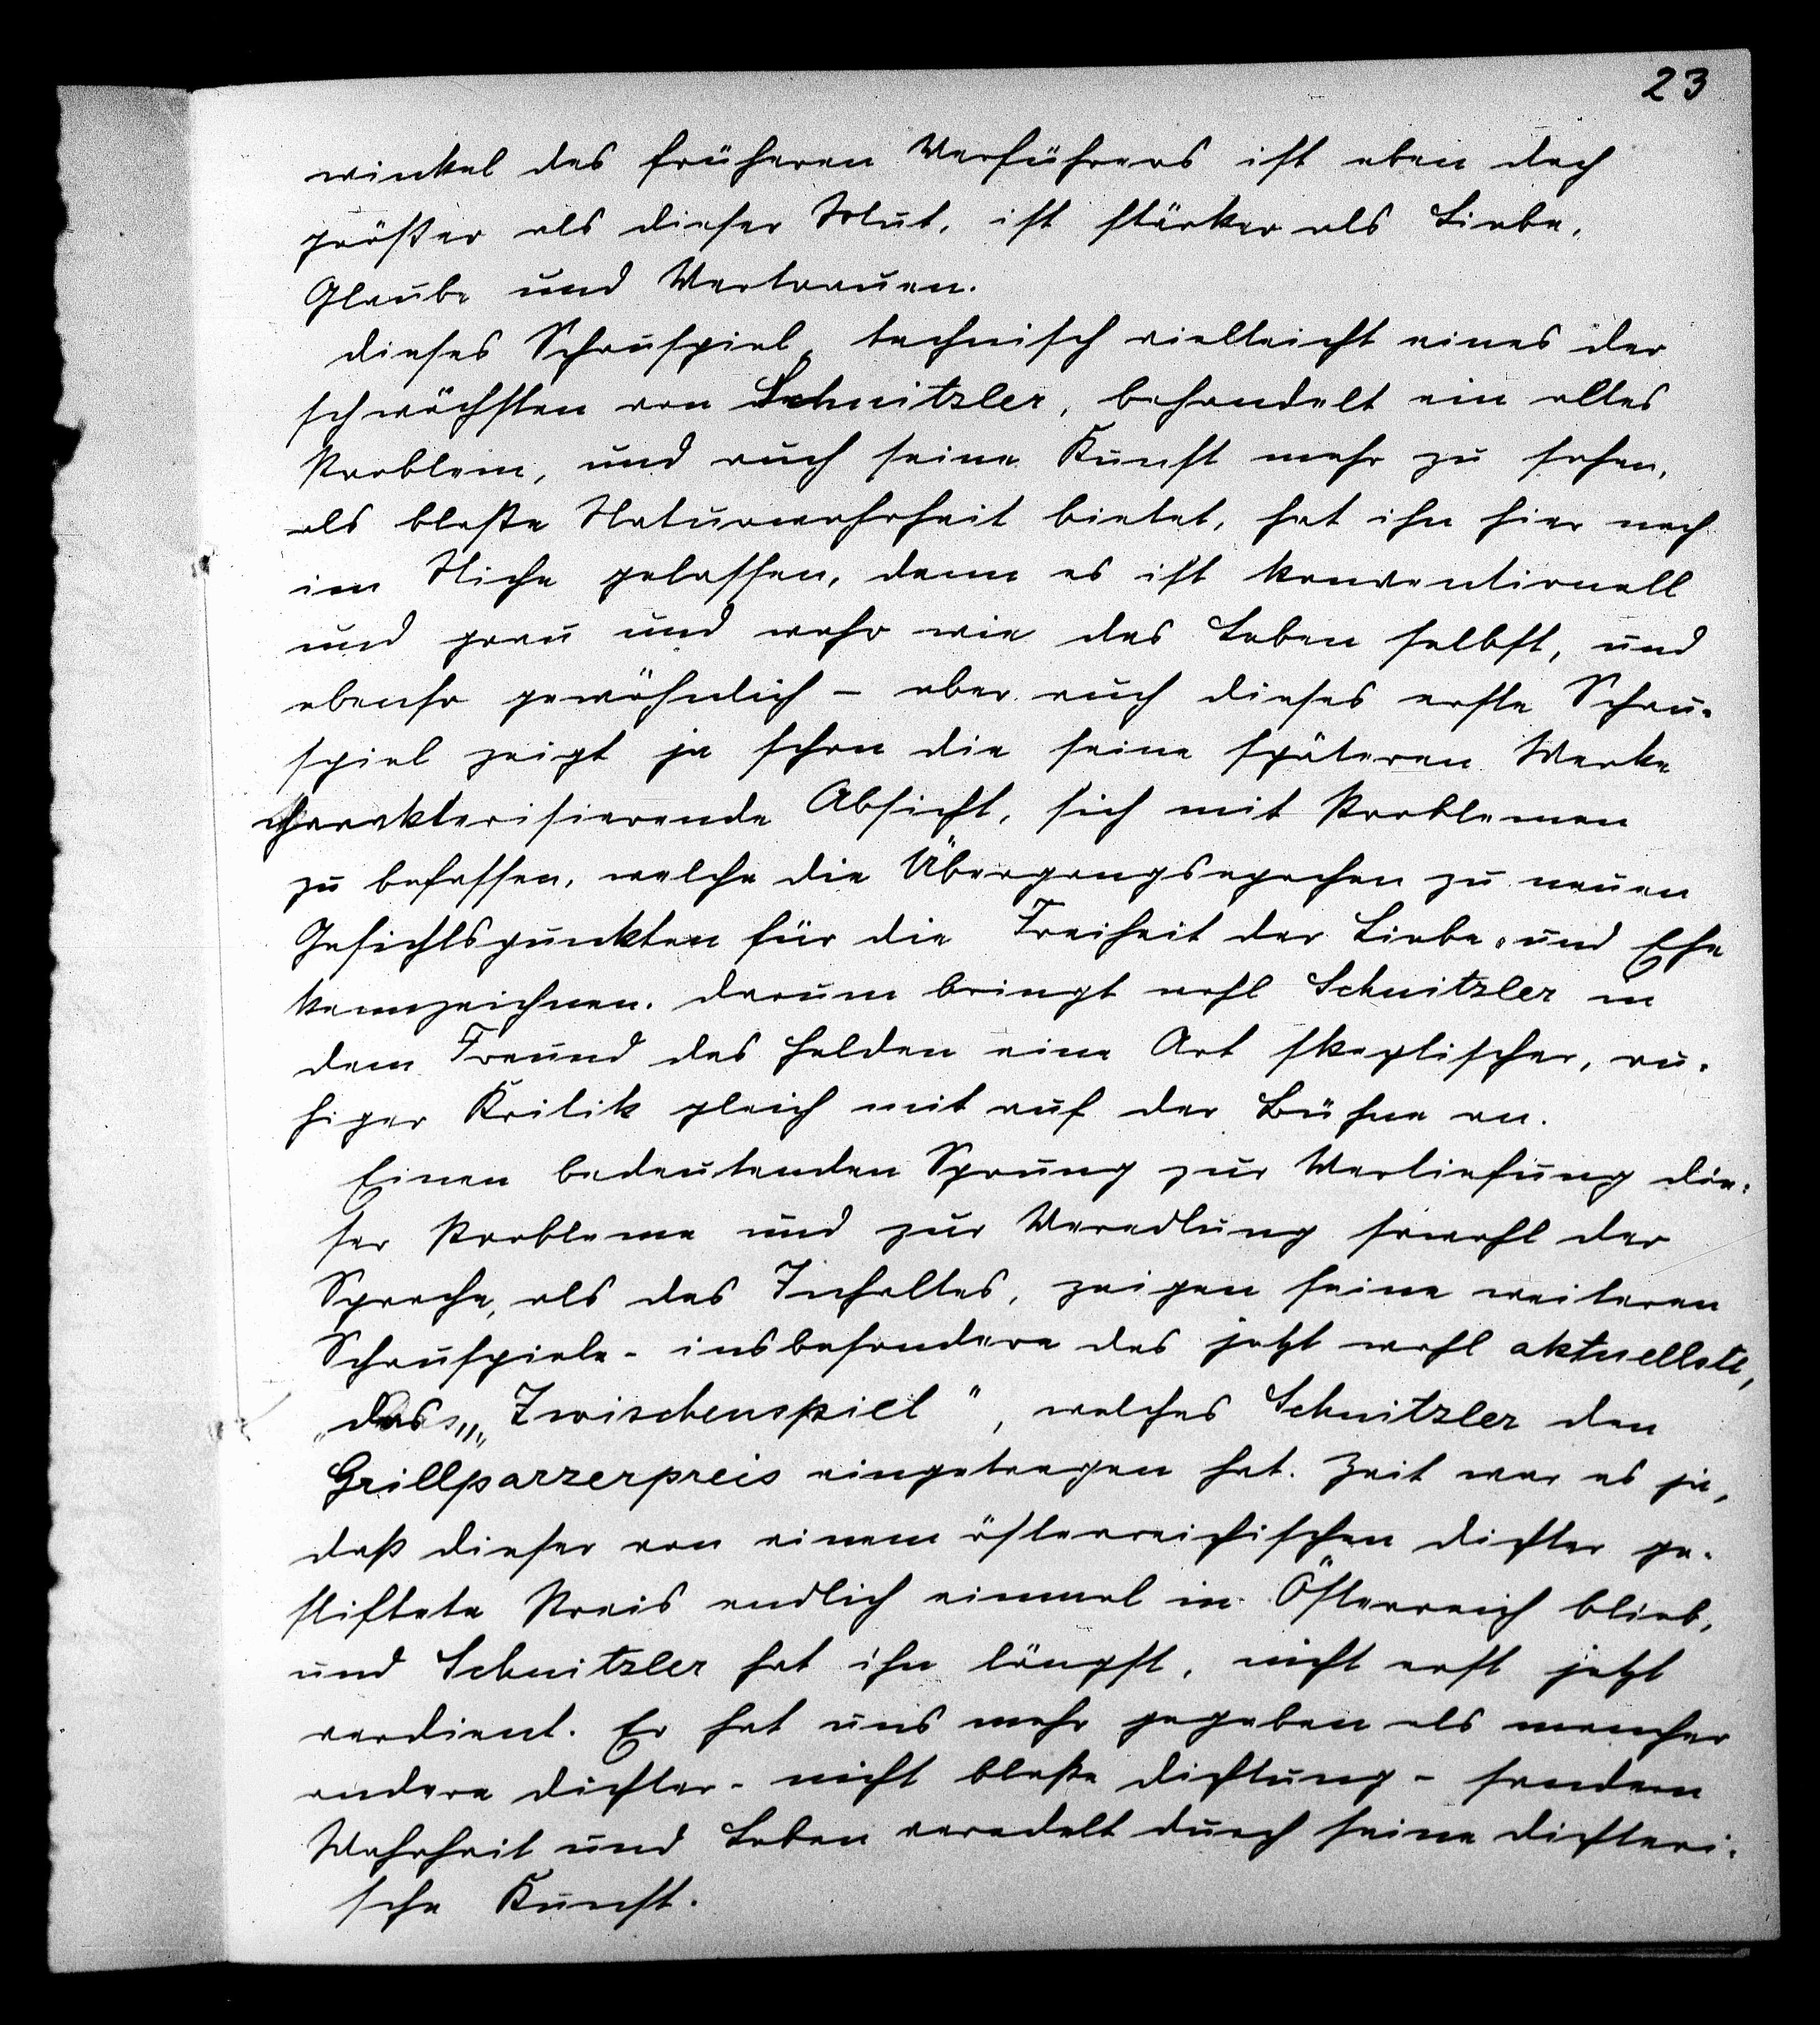 23
winkel des früheren Verführers ist eben doch
größer als dieser Mut, ist stärker als Liebe,
Glaube und Vertrauen.
Dieses Schauspiel, technisch vielleicht eines der
schwächsten von Schnitzler, behandelt ein altes
Problem, und auch seine Kunst mehr zu sehen,
als bloße Naturwahrheit bietet, hat ihn hier noch
im Stiche gelassen, denn es ist konventionell
und grau und wahr wie das Leben selbst, und
ebenso gewöhnlich – aber auch dieses erste Schau-
spiel zeigt ja schon die seine späteren Werke
charakterisierende Absicht, sich mit Problemen
zu befassen, welche die Übergangsepochen zu neuen
Gesichtspunkten für die Freiheit der Liebe und Ehe
kennzeichnen. Darum bringt wohl Schnitzler in
dem Freund des Helden eine Art skeptischer, ru-
higer Kritik gleich mit auf der Bühne an.
Einen bedeutenden Sprung zur Vertiefung die-
ser Probleme und zur Veredlung sowohl der
Sprache, als des Inhaltes, zeigen seine weiteren
Schauspiele - insbesondere das jetzt wohl aktuellste,
das „Zwischenspiel", welches Schnitzler den
Grillparzerpreis eingetragen hat. Zeit war es ja,
daß dieser von einem österreichischen Dichter ge-
stiftete Preis endlich einmal in Österreich blieb,
und Schnitzler hat ihn längst, nicht erst jetzt
verdient. Er hat uns mehr gegeben als mancher
andere Dichter - nicht bloße Dichtung - sondern
Wahrheit und Leben veredelt durch seine dichteri-
sche Kunst.